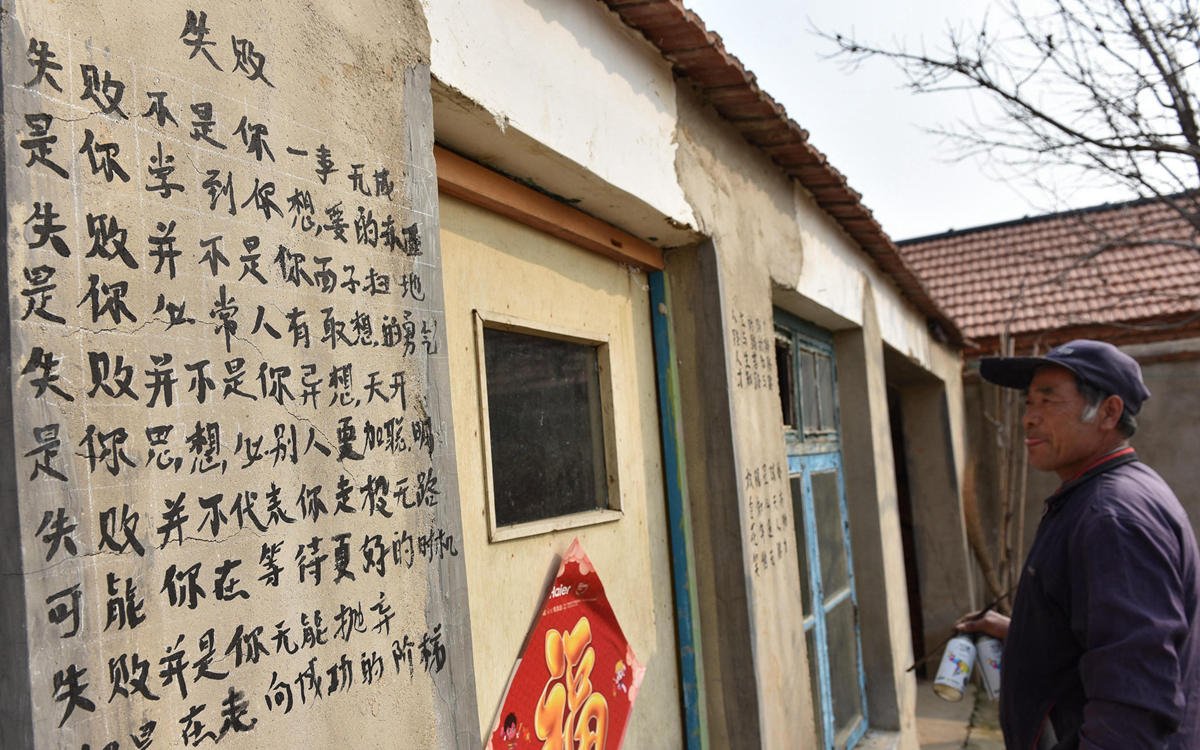 失败
失败不是你一事无成
是你学到你想要的
失败并不是你面子扫地
是你比常人有敢想的勇气
失败并不是你异想天开
是你思想比别人更加聪明
失败并不代表你走投无路
可能你在等待更好的时机
失败并是你无能抛弃
是在走向成功的阶梯
Haier
福